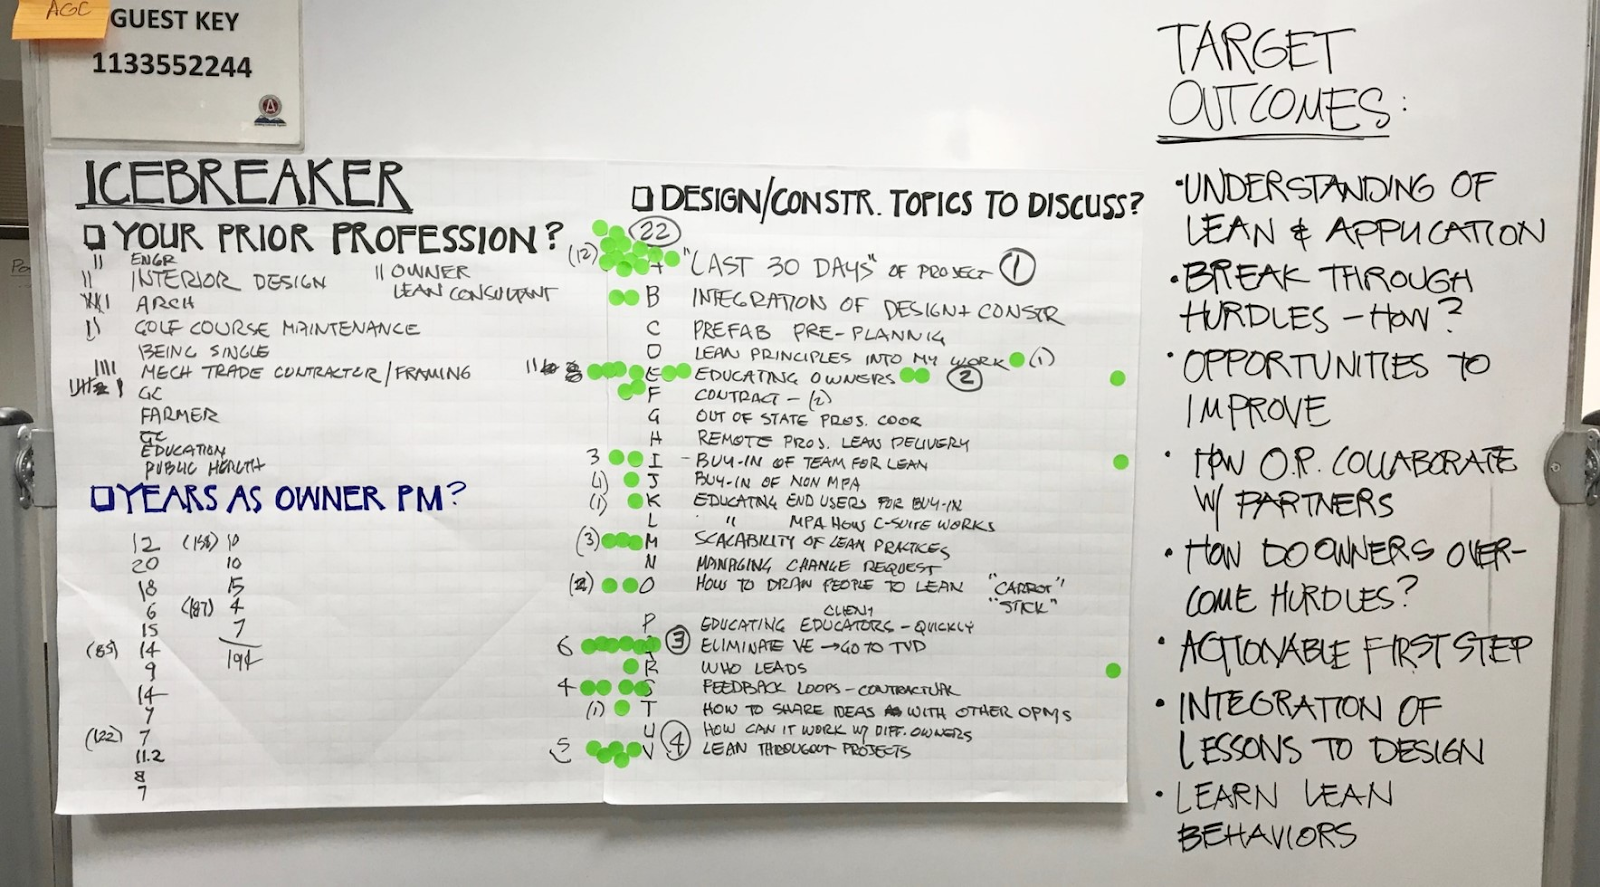 AGC
GUEST KEY
1133552244
ICEBREAKER
YOUR PRIOR PROFESSION?
ENGR
INTERIOR DESIGN
OWNER
LEAN CONSULTANT
ARCH
GOLF COURSE MAINTENANCE
BEING SINGLE
MECH TRADE CONTRACTOR/FRAMING
GC
FARMER
GC
EDUCATION
PUBLIC HEALTH
YEARS AS OWNER PM?
12 (158) 10
20 10
18 15
6 (187) 4
15 7
(89) 14 194
9
14
7
(122) 7
11.2
8
7
DESIGN/CONSTR. TOPICS TO DISCUSS?
22
(12) "LAST 30 DAYS" OF PROJECT 1
B INTEGRATION OF DESIGN + CONSTR
C PREFAB PRE-PLANNIG
D LEAN PRINCIPLES INTO MY WORK (1)
E EDUCATING OWNERS 2
F CONTRACT - (2)
G OUT OF STATE PROJ. COOR
H REMOTE PROJ. LEAN DELIVERY
3 I - BUY-IN OF TEAM FOR LEAN
(1) J BUY-IN OF NON MPA
(1) K EDUCATING END USERS FOR BUY-IN
L " MPA HOW C-SUITE WORKS
(3) M SCALABILITY OF LEAN PRACTICES
N MANAGING CHANGE REQUEST
(2) O HOW TO DRAW PEOPLE TO LEAN "CARROT"
"STICK"
CLIENT
P EDUCATING EDUCATORS - QUICKLY
6 3 ELIMINATE VE → GO TO TVD
R WHO LEADS
4 S FEEDBACK LOOPS - CONTRACTUAL
(1) T HOW TO SHARE IDEAS WITH OTHER OPMS
U HOW CAN IT WORK W/ DIFF. OWNERS
5 V 4 LEAN THROUGOUT PROJECTS
TARGET
OUTCOMES:
•UNDERSTANDING OF
LEAN & APPLICATION
•BREAK THROUGH
HURDLES - HOW?
•OPPORTUNITIES TO
IMPROVE
•HOW O.P. COLLABORATE
W/ PARTNERS
•HOW DO OWNERS OVER-
COME HURDLES?
•ACTIONABLE FIRST STEP
•INTEGRATION OF
LESSONS TO DESIGN
•LEARN LEAN
BEHAVIORS